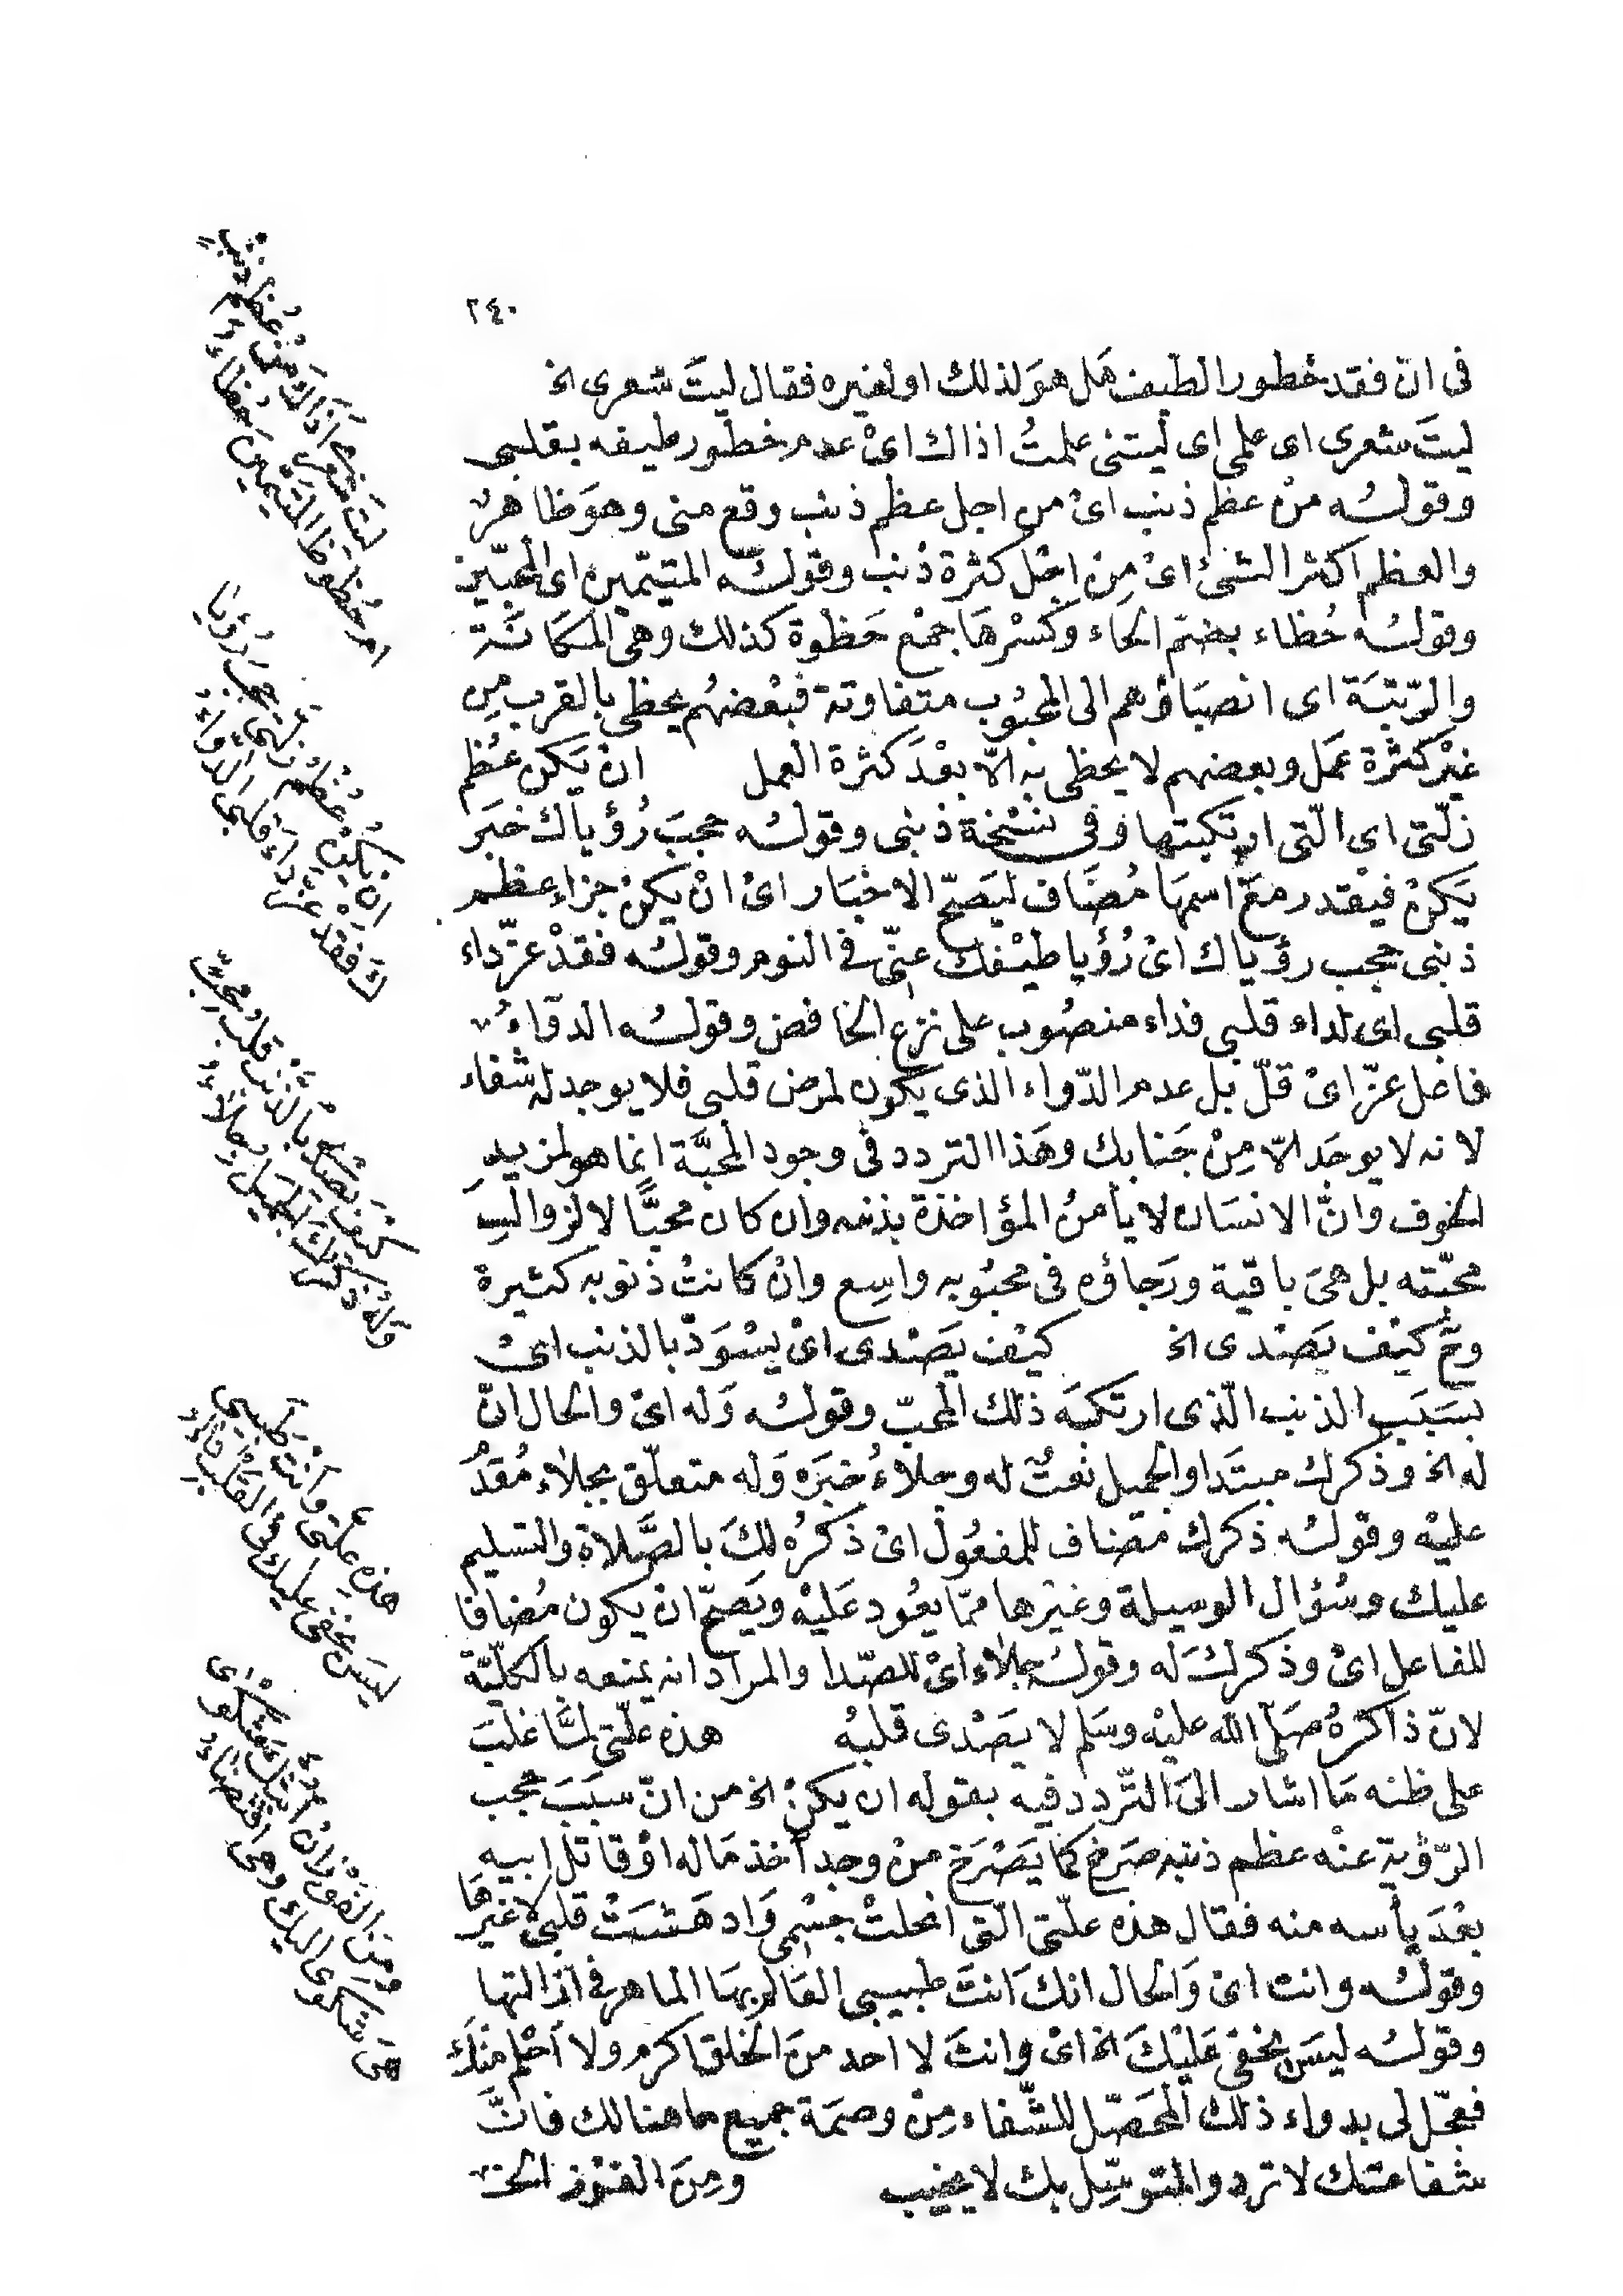 ٢٤٠
فى انّ فقد خطور الطيف هَل هوَ لذلك او لغيره فقال ليتَ شعرى الخ
ليتَ شعرى اى علمى اى ليتنى علمتُ اذاك اىْ عدم خطور طيفه بقلبى
وقولُه منْ عظم ذنب اىْ من اجل عظم ذنب وقع منى وهوَ ظاهرٌ
والعظم اكثر الشئ اىْ مِنْ اجْل كثرة ذنب وقولُه المتيّمين اى المحبّين
وقولُه حُظاء بضمّ الحاء وكسْرهَا جمْع حَظْوة كذلك وهىْ المكَانَة
والرّتبَة اى انصبَاؤهم الى المحبُوب متفاوتة فبعْضهُم يحظى بالقرب مِن
غيْر كثْرة عمَل وبعضهم لا يحظى به الّا بعْدَ كثرة العمل انْ يَكن عُظم
زلّتى اى الّتى ارتكبتها وفى نسْخة ذنبى وقولُه حجبَ رُؤياك خبَر
يَكنْ فيْقدر معَ اسمهَا مُضَاف ليَصحّ الاخبَار اىْ انْ يكنْ جزاء عظم
ذنبى حجب رؤياك اىْ رُؤيا طيْفك عنّى فى النوم وقولُه فقدْ عزّ داء
قلبى اى لداء قلبى فداء منصُوب على نزع الخافض وقولُه الدوَاءُ
فاعل عزّ اىْ قلّ بل عدم الدّواء الذى يكون لمرض قلبى فلا يوجد له شفاء
لانه لا يوجَد الّا مِنْ جَنابك وهَذا التردد فى وجود المحبَّة انما هو لمزيدِ
الخوف وانّ الانسَان لا يأمنُ المؤاخذة بذنبه وان كان محبًّا لا لزوالِ
محبّته بل هىَ باقية ورَجاؤه فى محبُوبه واسِع وانْ كانتْ ذنوبه كثيرة
ومن ثمّ كيْف يَصْدى الخ كيْف يَصْدى اىْ يسْوَدّ بالذنب اىْ
بسَبَب الذنب الّذى ارتكبَه ذلك المحبّ وقولُه وَله اىْ والحال انّ
له الخ وذكرك مبتَدا والجميل نعتٌ له وجلاءُ خبَره وَله متعلّق بجلاء مُقدّم
عليْه وقولُه ذكرك مضاف للمفعُول اىْ ذكرُه لكَ بالصَّلاة والتسليم
عليك وسُؤال الوسيلة وغيْرها ممّا يعُود عَليْه ويَصحّ انْ يكون مُضافا
للفاعل اىْ وذكركَ له وقولُه جلاء اىْ للصّدا والمراد انه يمنعه بالكليّة
لانّ ذاكرهُ صَلّى الله عليْه وسَلم لا يصَدْى قلبُه هذه علّتى لمَّا غلبَ
على ظنه مَا اشار الىَ التّردد فيه بقوله ان يكنْ الخ من انّ سببَ حجب
الرّؤية عنْه عظم ذنبه صَرخ كما يَصْرَخ منْ وجد آخذ مَاله اوْ قاتل ابيه
بعْدَ يأسه منه فقال هذه علّتى الّتى انحلتْ جسْمى وَادهَشتْ قلبى لا غيْرهَا
وقولُه وانت اىْ وَالحال انكَ انتَ طبيبى العَالم بهَا الماهر فى ازالتها
وقولُه ليسَ يخفى عَليْكَ الخ اىْ وانتَ لا احد منَ الخلق اكرم ولا أحْلم منْكَ
فعجّل لى بدواء ذلك المحَصّل للشّفاء مِنْ وصمَة جميع ما هنالك فانَّ
شفاعتك لا ترد والمتوسّل بك لا يخيب ومِنَ الفوْز الخ
ليْتَ شعْرى أذَاكَ منْ عُظمِ ذنْبٍ
ام حُظوظ المتَيّمينَ حُظاءُ
انْ يكنْ عُظمُ زلّتى حجْبَ رُؤيَا
كَ فقَدْ عزَّ دَاءَ قلبى الدّوَاءُ
كيْفَ يَصْدَى بالذّنْبِ قلبُ محِبٍّ
وَلهُ ذكرُكَ الجميلُ جِلَاءُ
هذه عِلّتى وَأنْتَ طَبيبى
ليسَ يخفى علَيْكَ فى القلْبِ دَاءُ
ومِنَ الفوْزِ انْ أبُثّكَ شَكْوَى
هىَ شَكْوَى اليْكَ وهىَ اقتضَاءُ